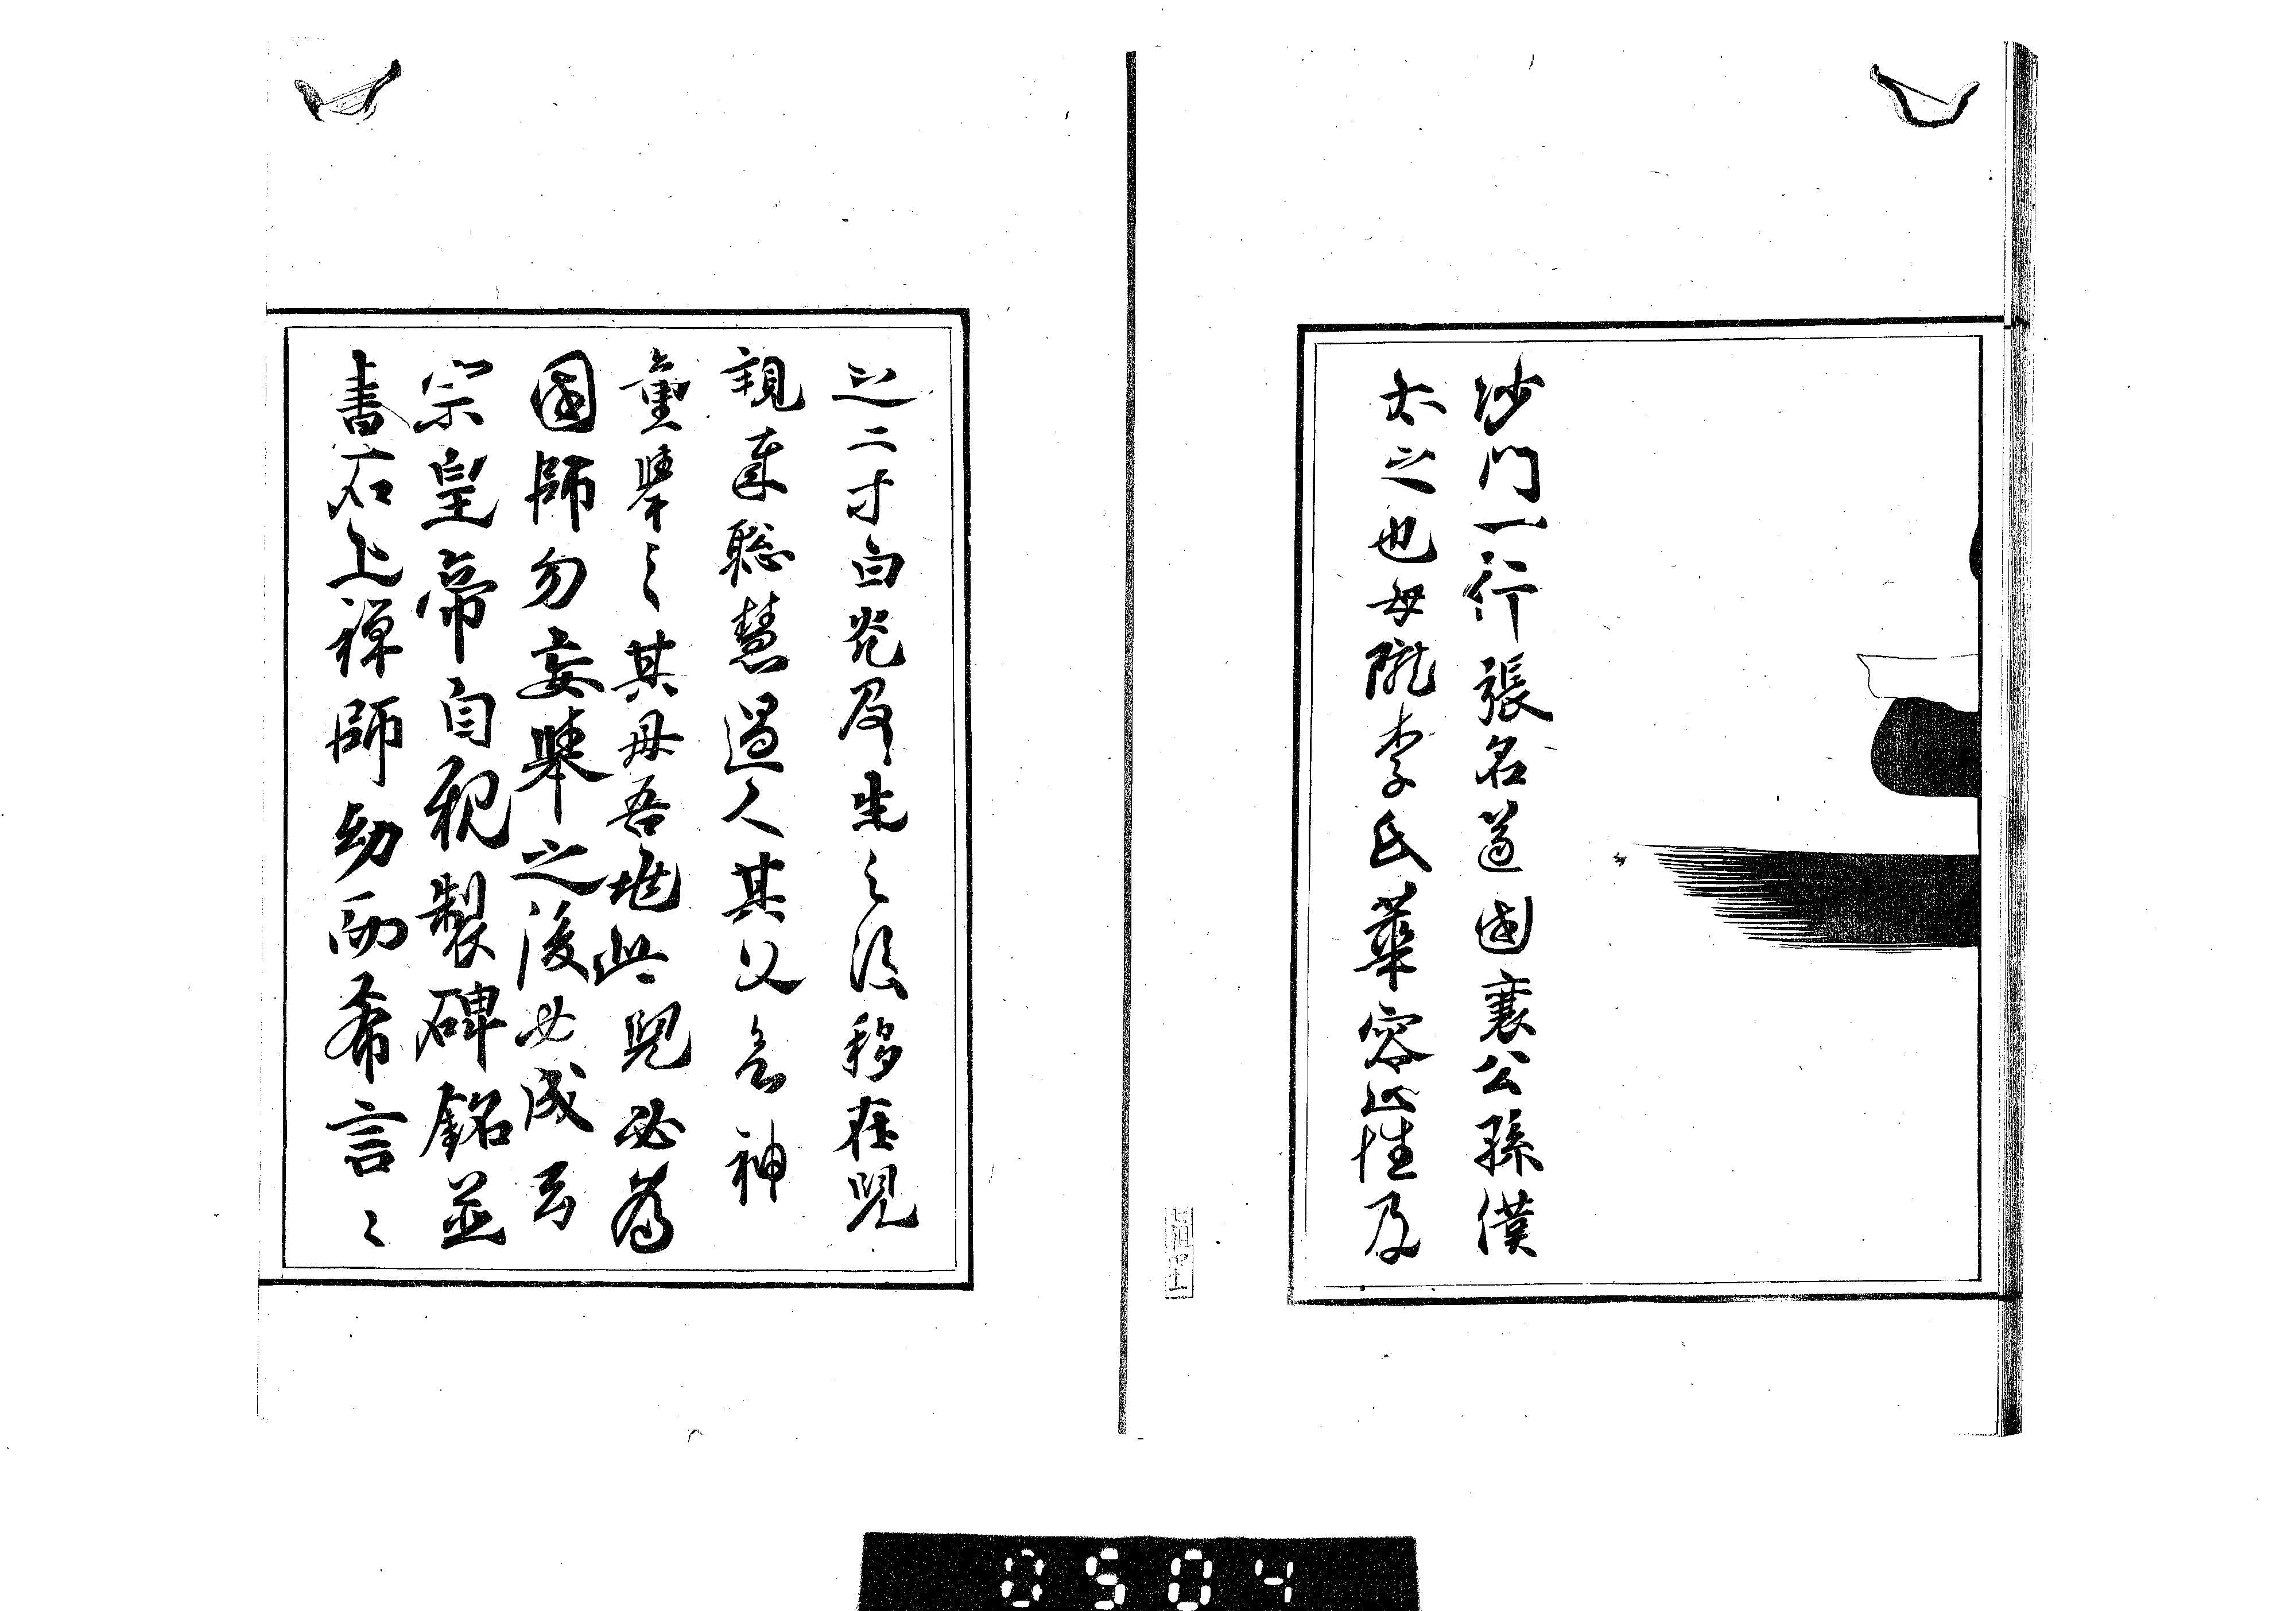 沙門一行張名遂国襄公孫僕
太之也母隴李氏華容淑性及
之二寸白光及生之後移在兒
親来聡慧過人其父名神
童挙之其母吾此兒必為
国師勿妄挙之後必成云
宗皇帝自親製碑銘並
書石上禅師幼而希言〻
0504